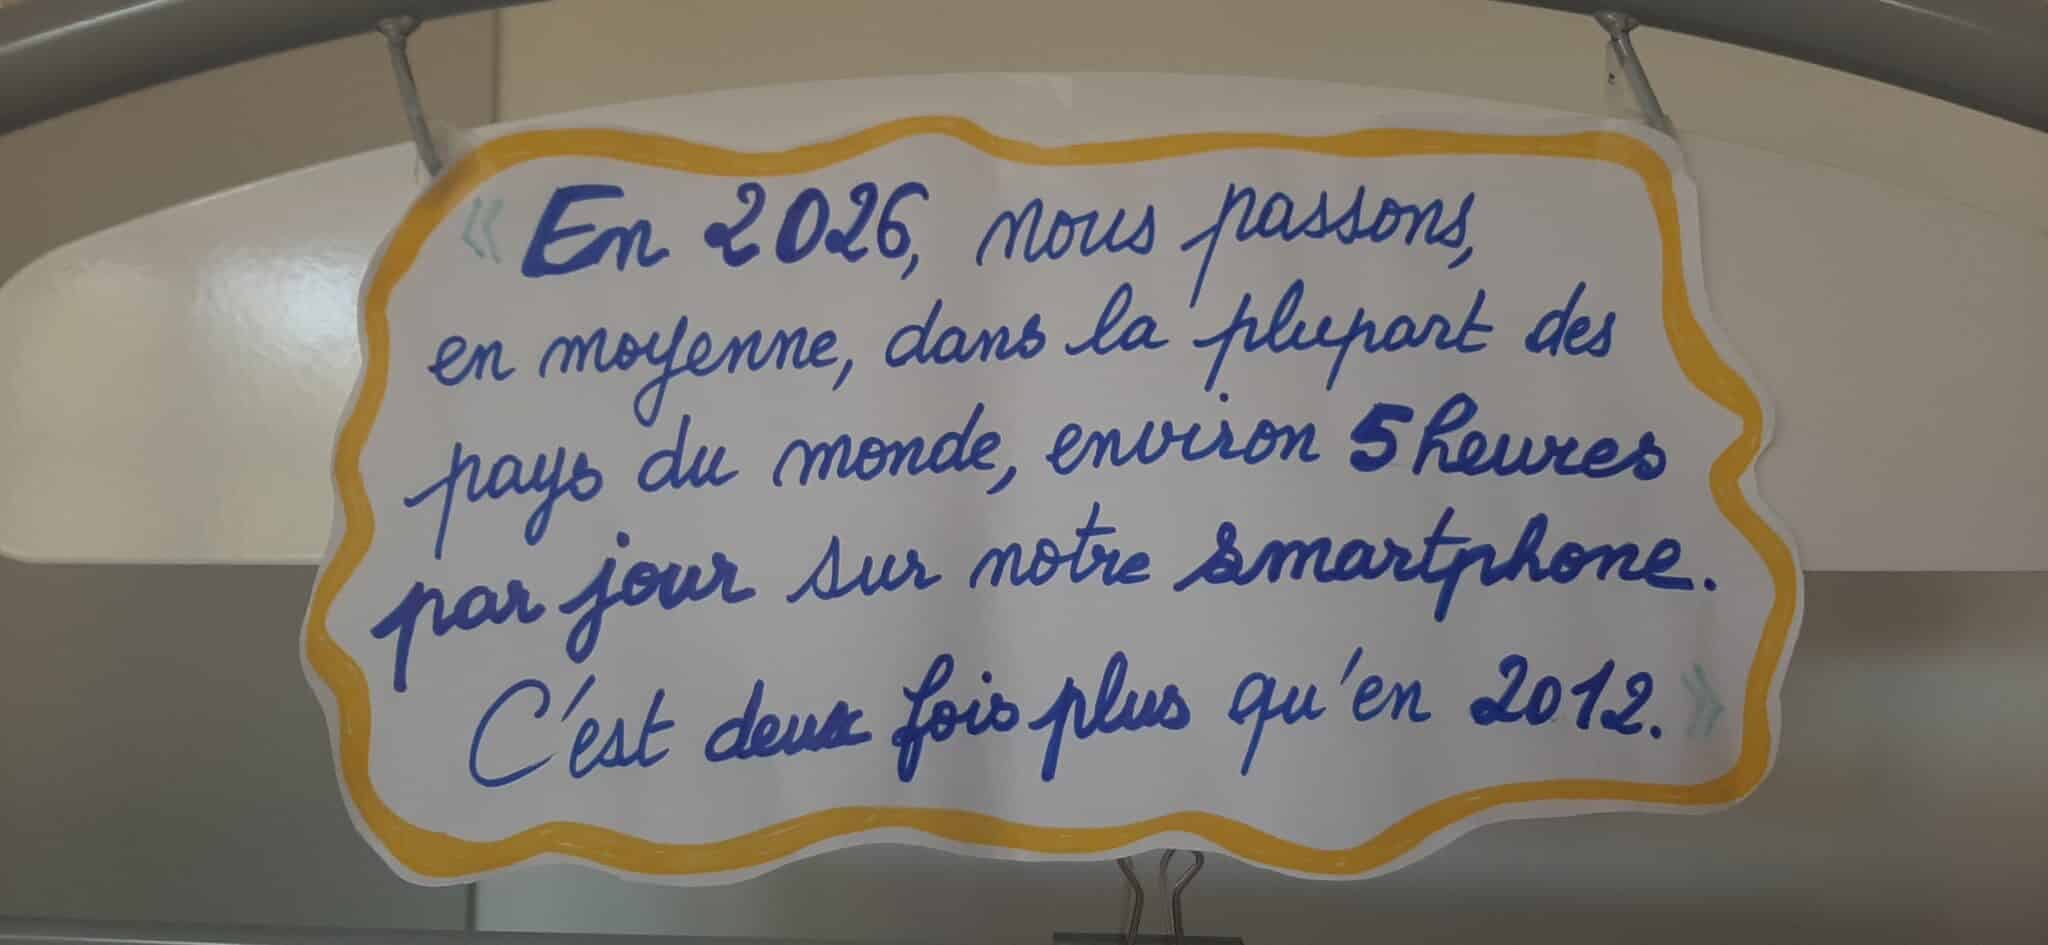 « En 2026, nous passons,
en moyenne, dans la plupart des
pays du monde, environ 5 heures
par jour sur notre smartphone.
C'est deux fois plus qu'en 2012. »